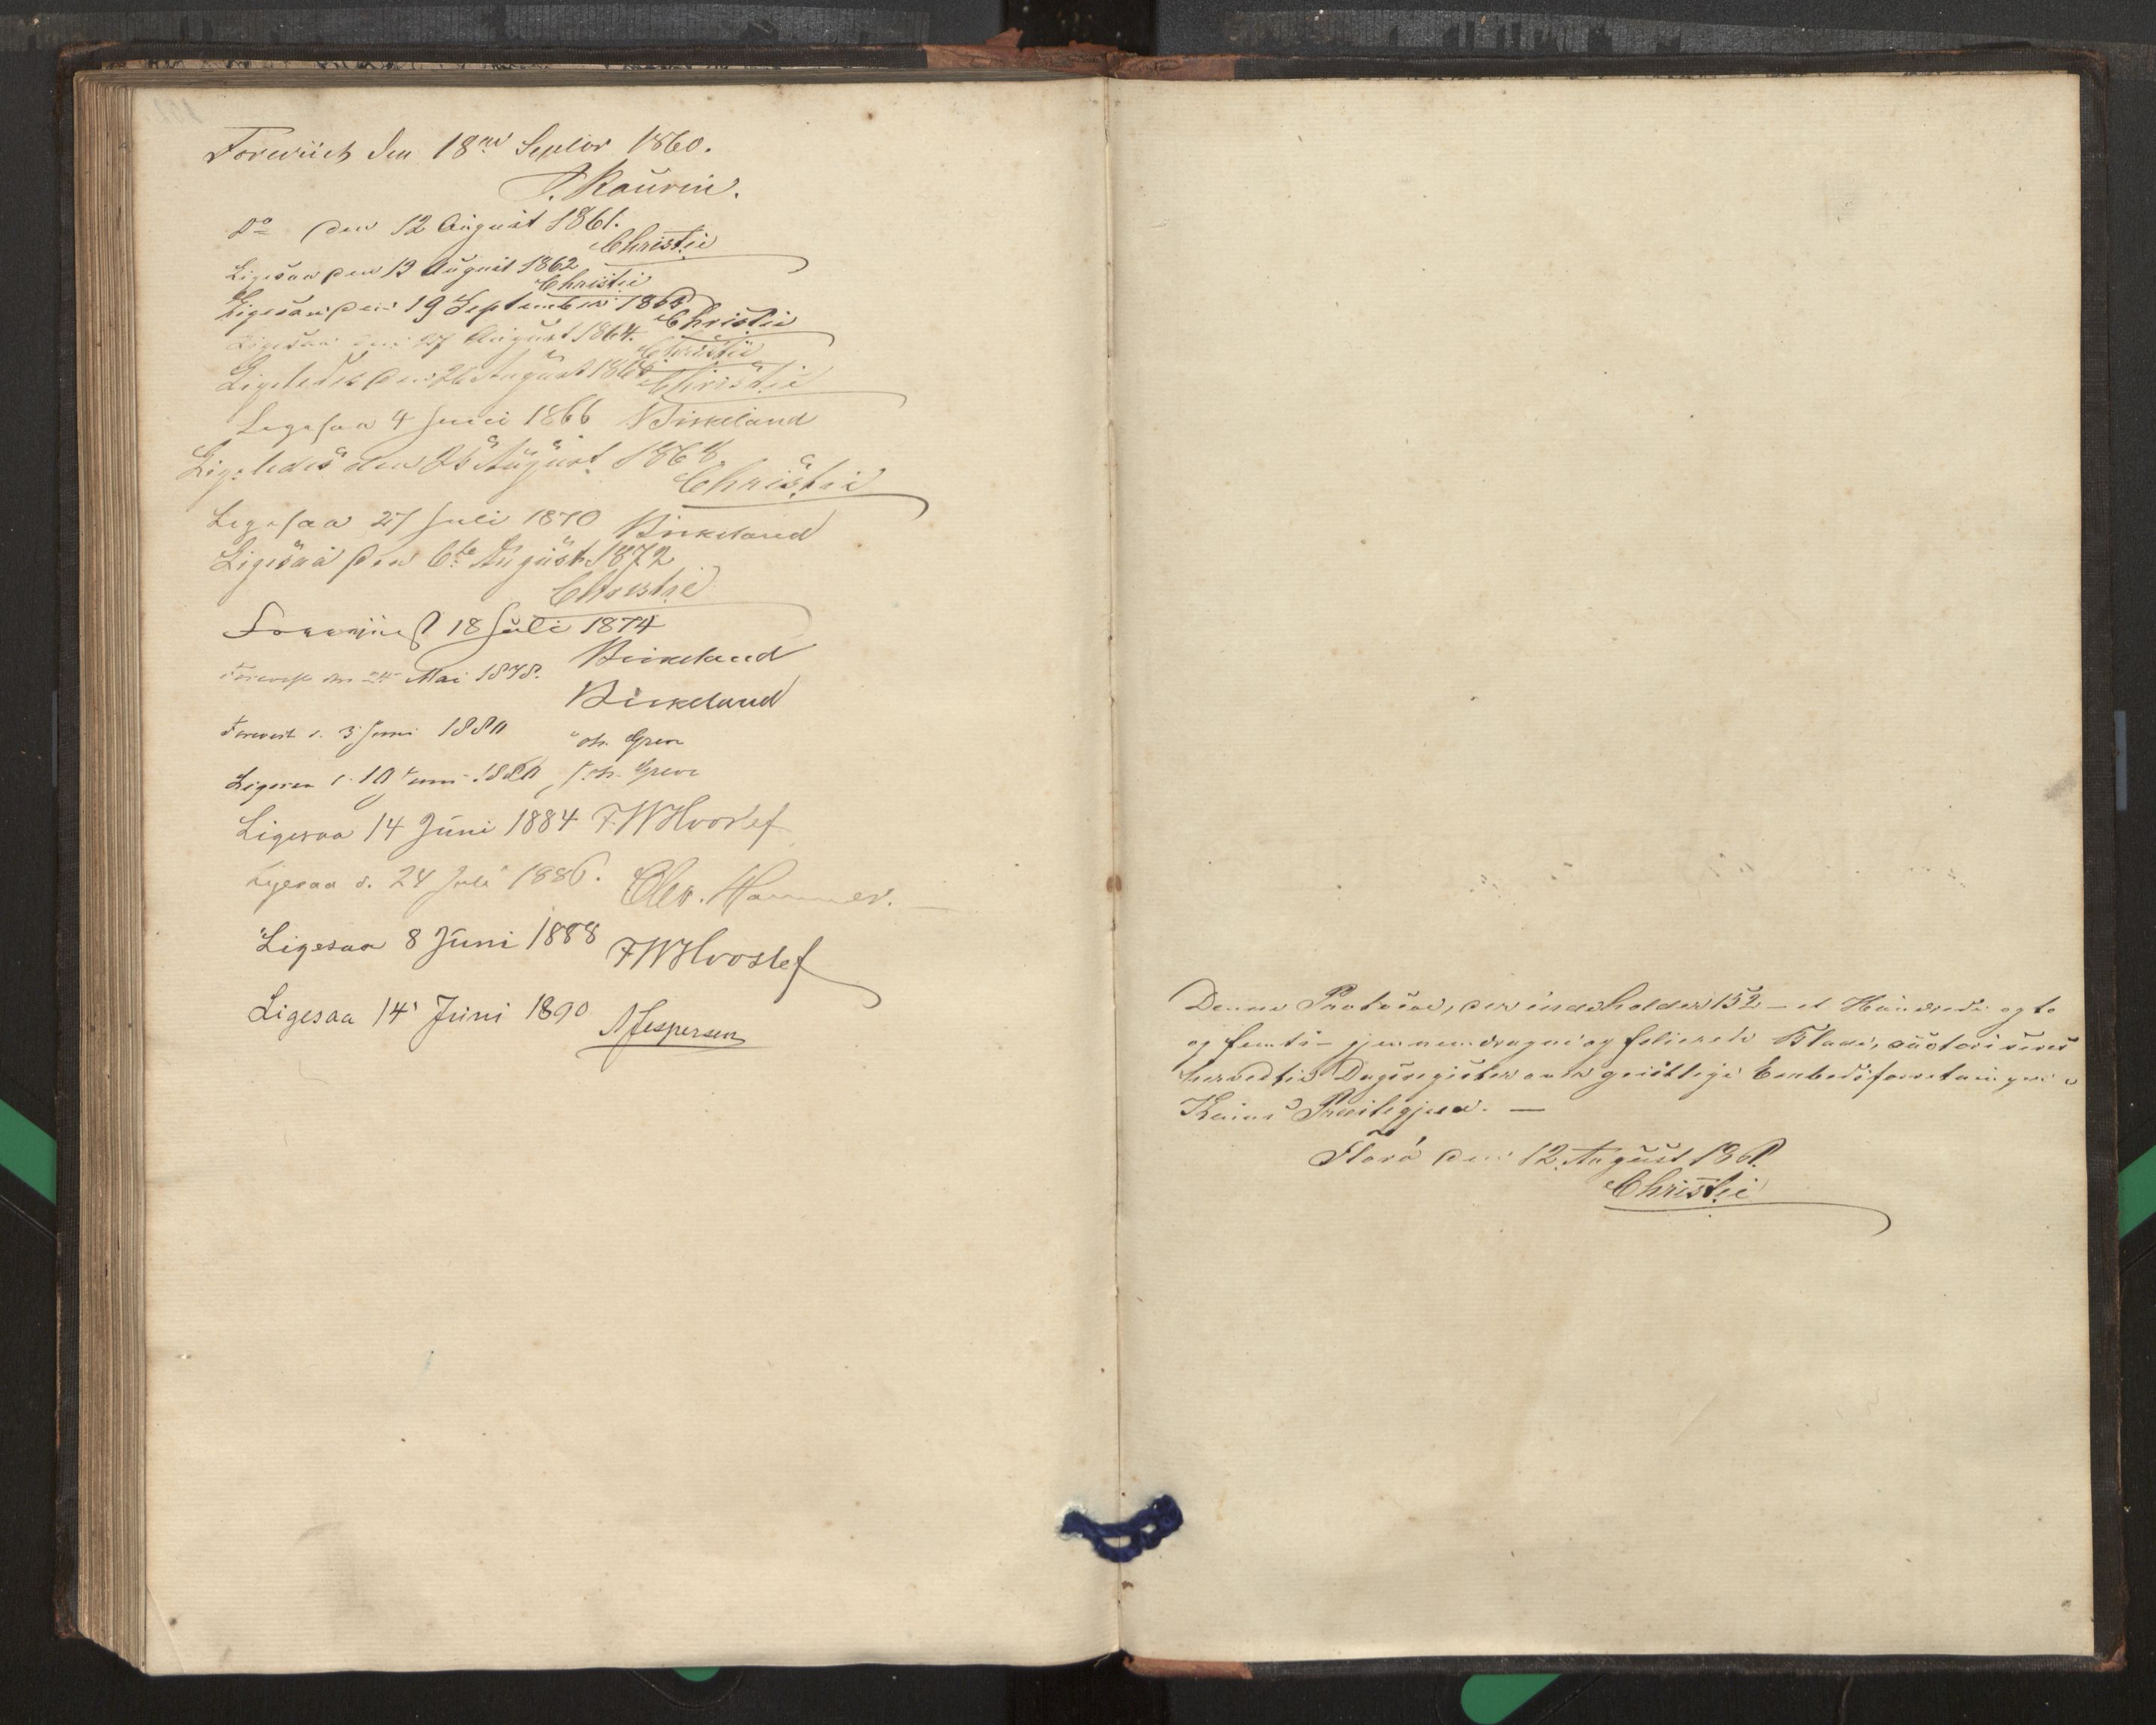 Foreviist den 18de Septbr 1860.
J. Kaurin.
Do den 12 August 1861.
Christie
Ligesaa den 13 August 1862
Christie
Ligesaa den 19 September 1863
Christie
Ligesaa den 27 August 1864.
Christie
Ligeledes den 26 August 1865 Christie
Ligesaa 4 Juni 1866 Birkeland
Ligeledes den 26 August 1868
Christie
Ligesaa 27 Juli 1870 Birkeland
Ligesaa den 6te August 1872
Christie
Foreviist 18 Juli 1874
Birkeland
Forevist den 24 Mai 1878.
Birkeland
Forevist d. 3 Juni 1880
Joh. Greve
Ligesaa d. 10 Juni 1880, Joh. Greve
Ligesaa 14 Juni 1884 FWHvoslef
Ligesaa d. 24 Juli 1886. Chr. Hammer.
Ligesaa 8 Juni 1888
FWHvoslef
Ligesaa 14 Juni 1890
N Jespersen
Denne Protocol, der indeholder 152 - et Hundrede og to
og femti - gjennemdragne og folierede Blade, autoriseres
herved til Dagsregister over geistlige Embedsforretninger i
Kinns Præstegjeld. —
Florø den 12 August 1861.
Christie